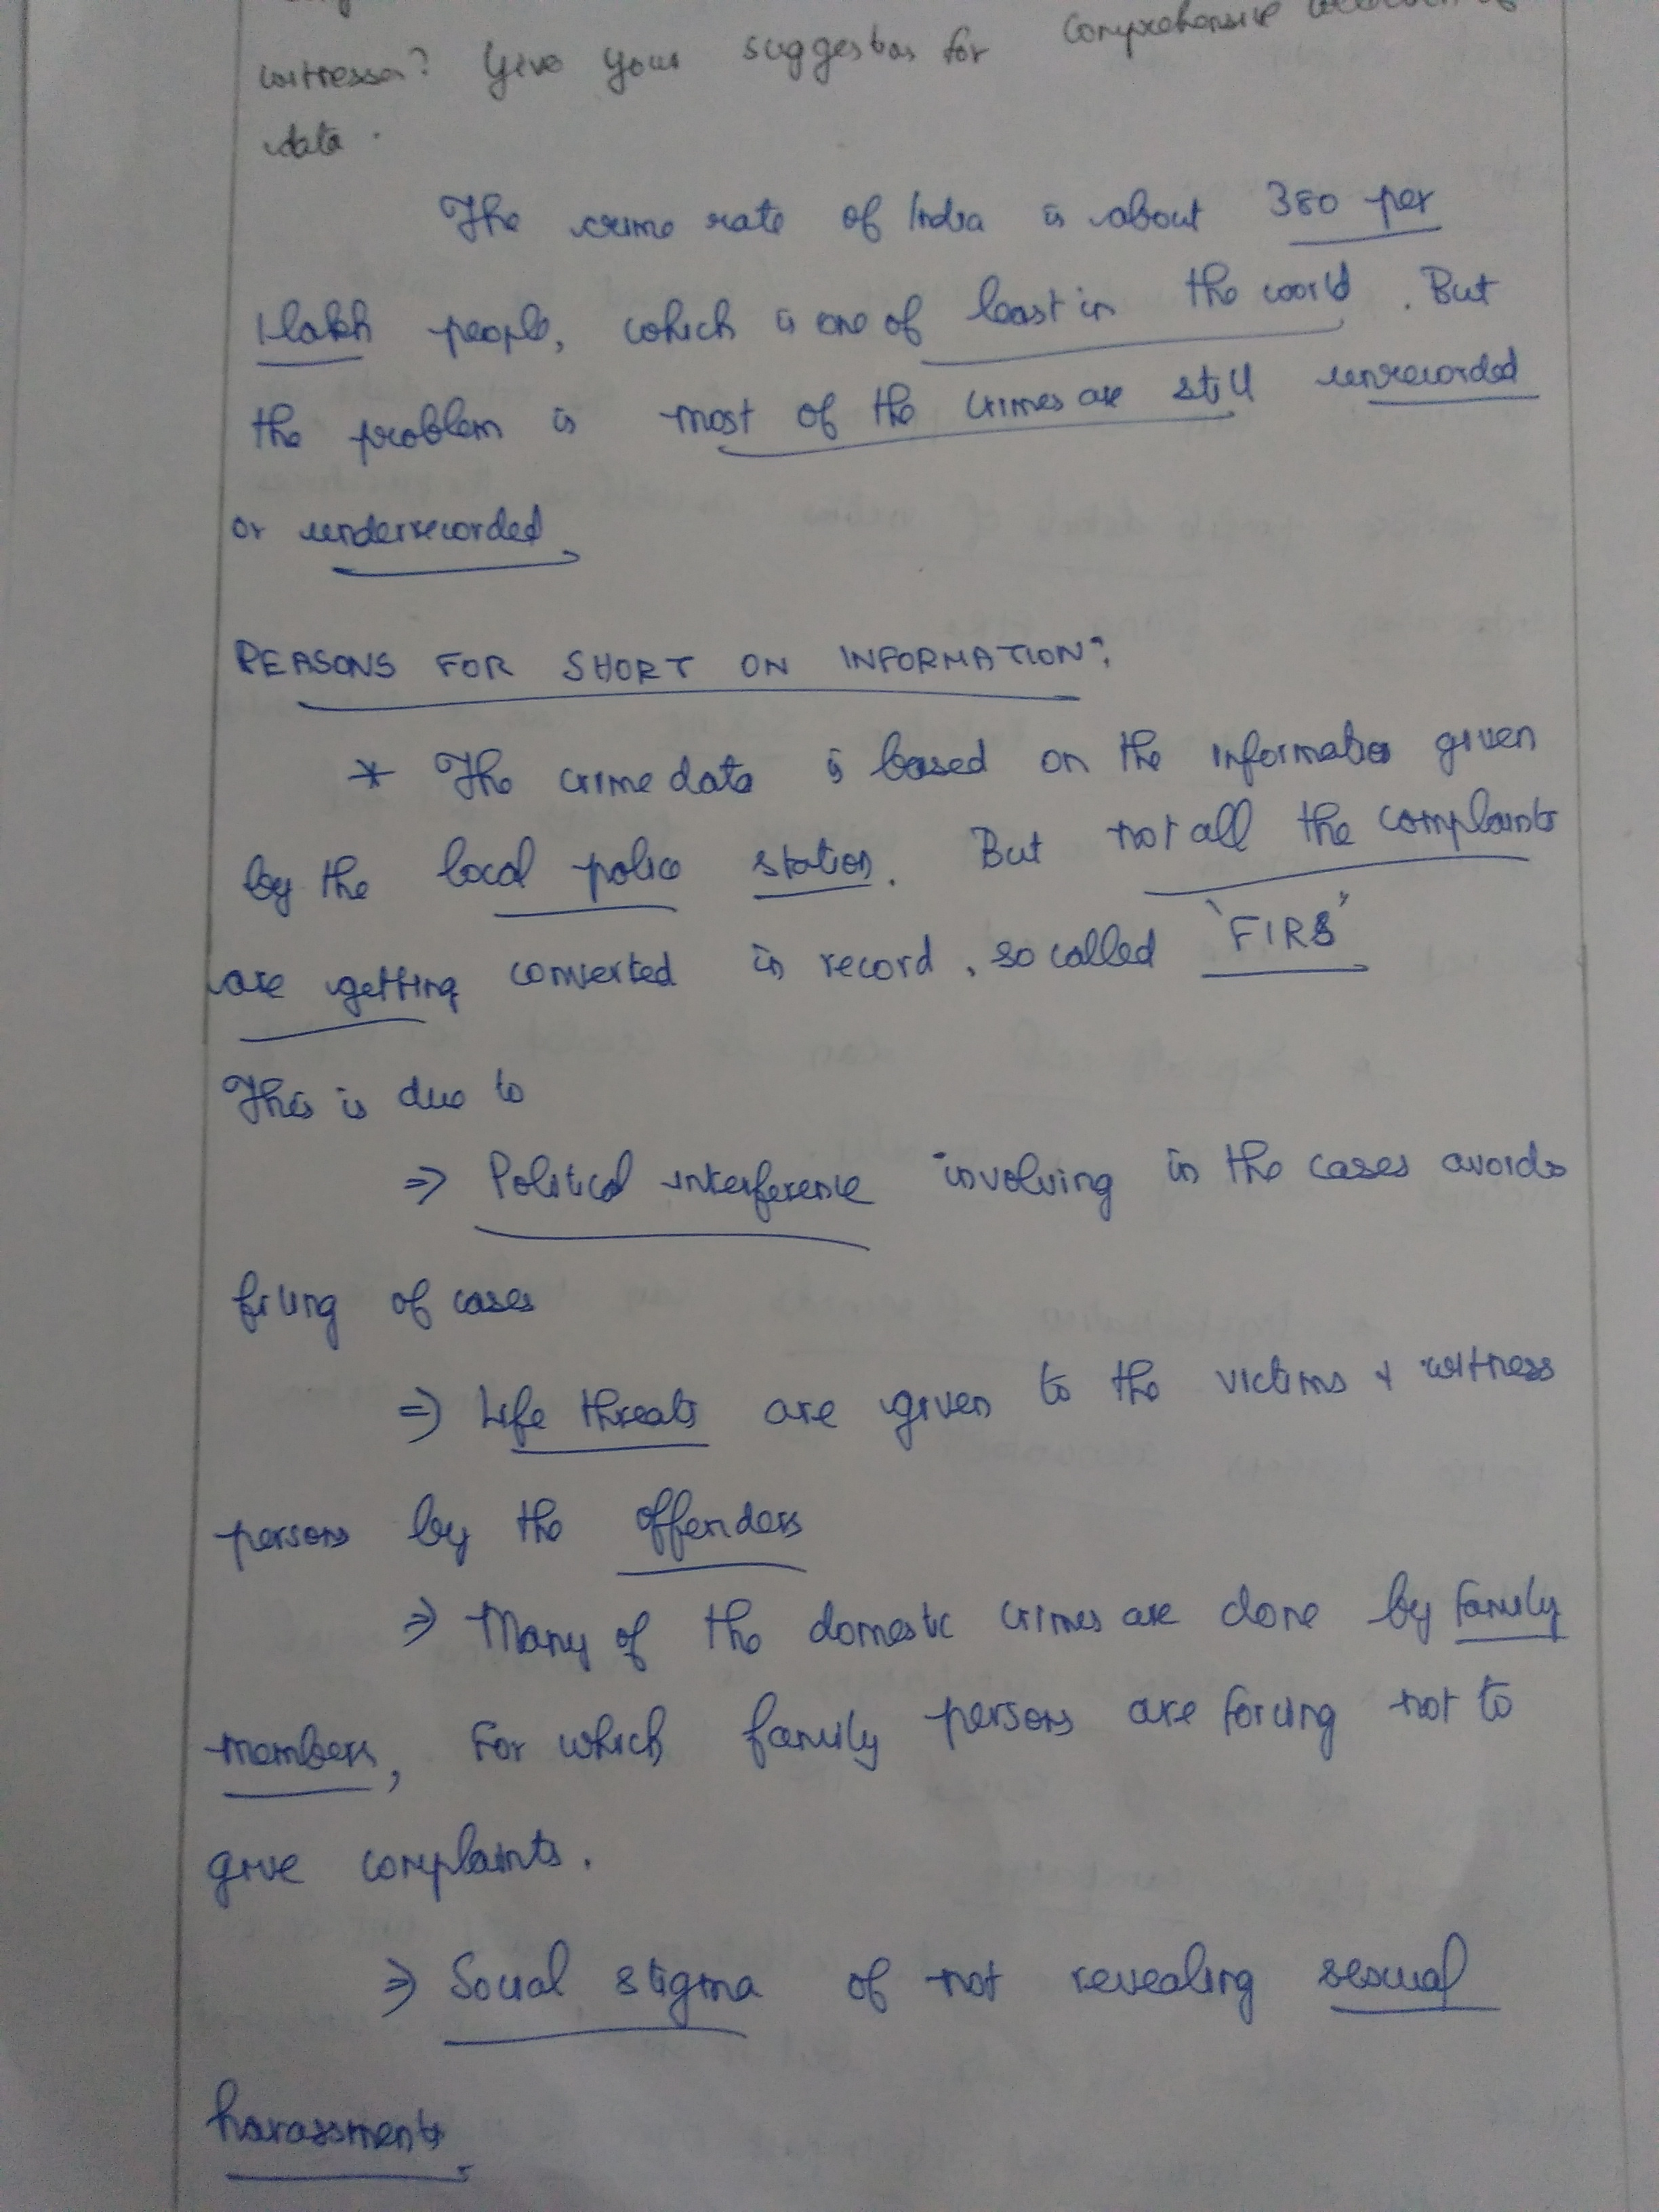 witnesses? Give your suggestions for comprehensive
data.
The crime rate of India is about 380 per
1 lakh people, which is one of least in the world. But
the problem is most of the crimes are still unrecorded
or underrecorded.
REASONS FOR SHORT ON INFORMATION:
* The crime data is based on the information given
by the local police station. But not all the complaints
are getting converted in record, so called "FIRs"
This is due to
⇒ Political interference involving in the cases avoids
filing of cases
⇒ Life threats are given to the victims & witness
persons by the offenders
⇒ Many of the domestic crimes are done by family
members, for which family persons are forcing not to
give complaints.
⇒ Social stigma of not revealing sexual
harassments.